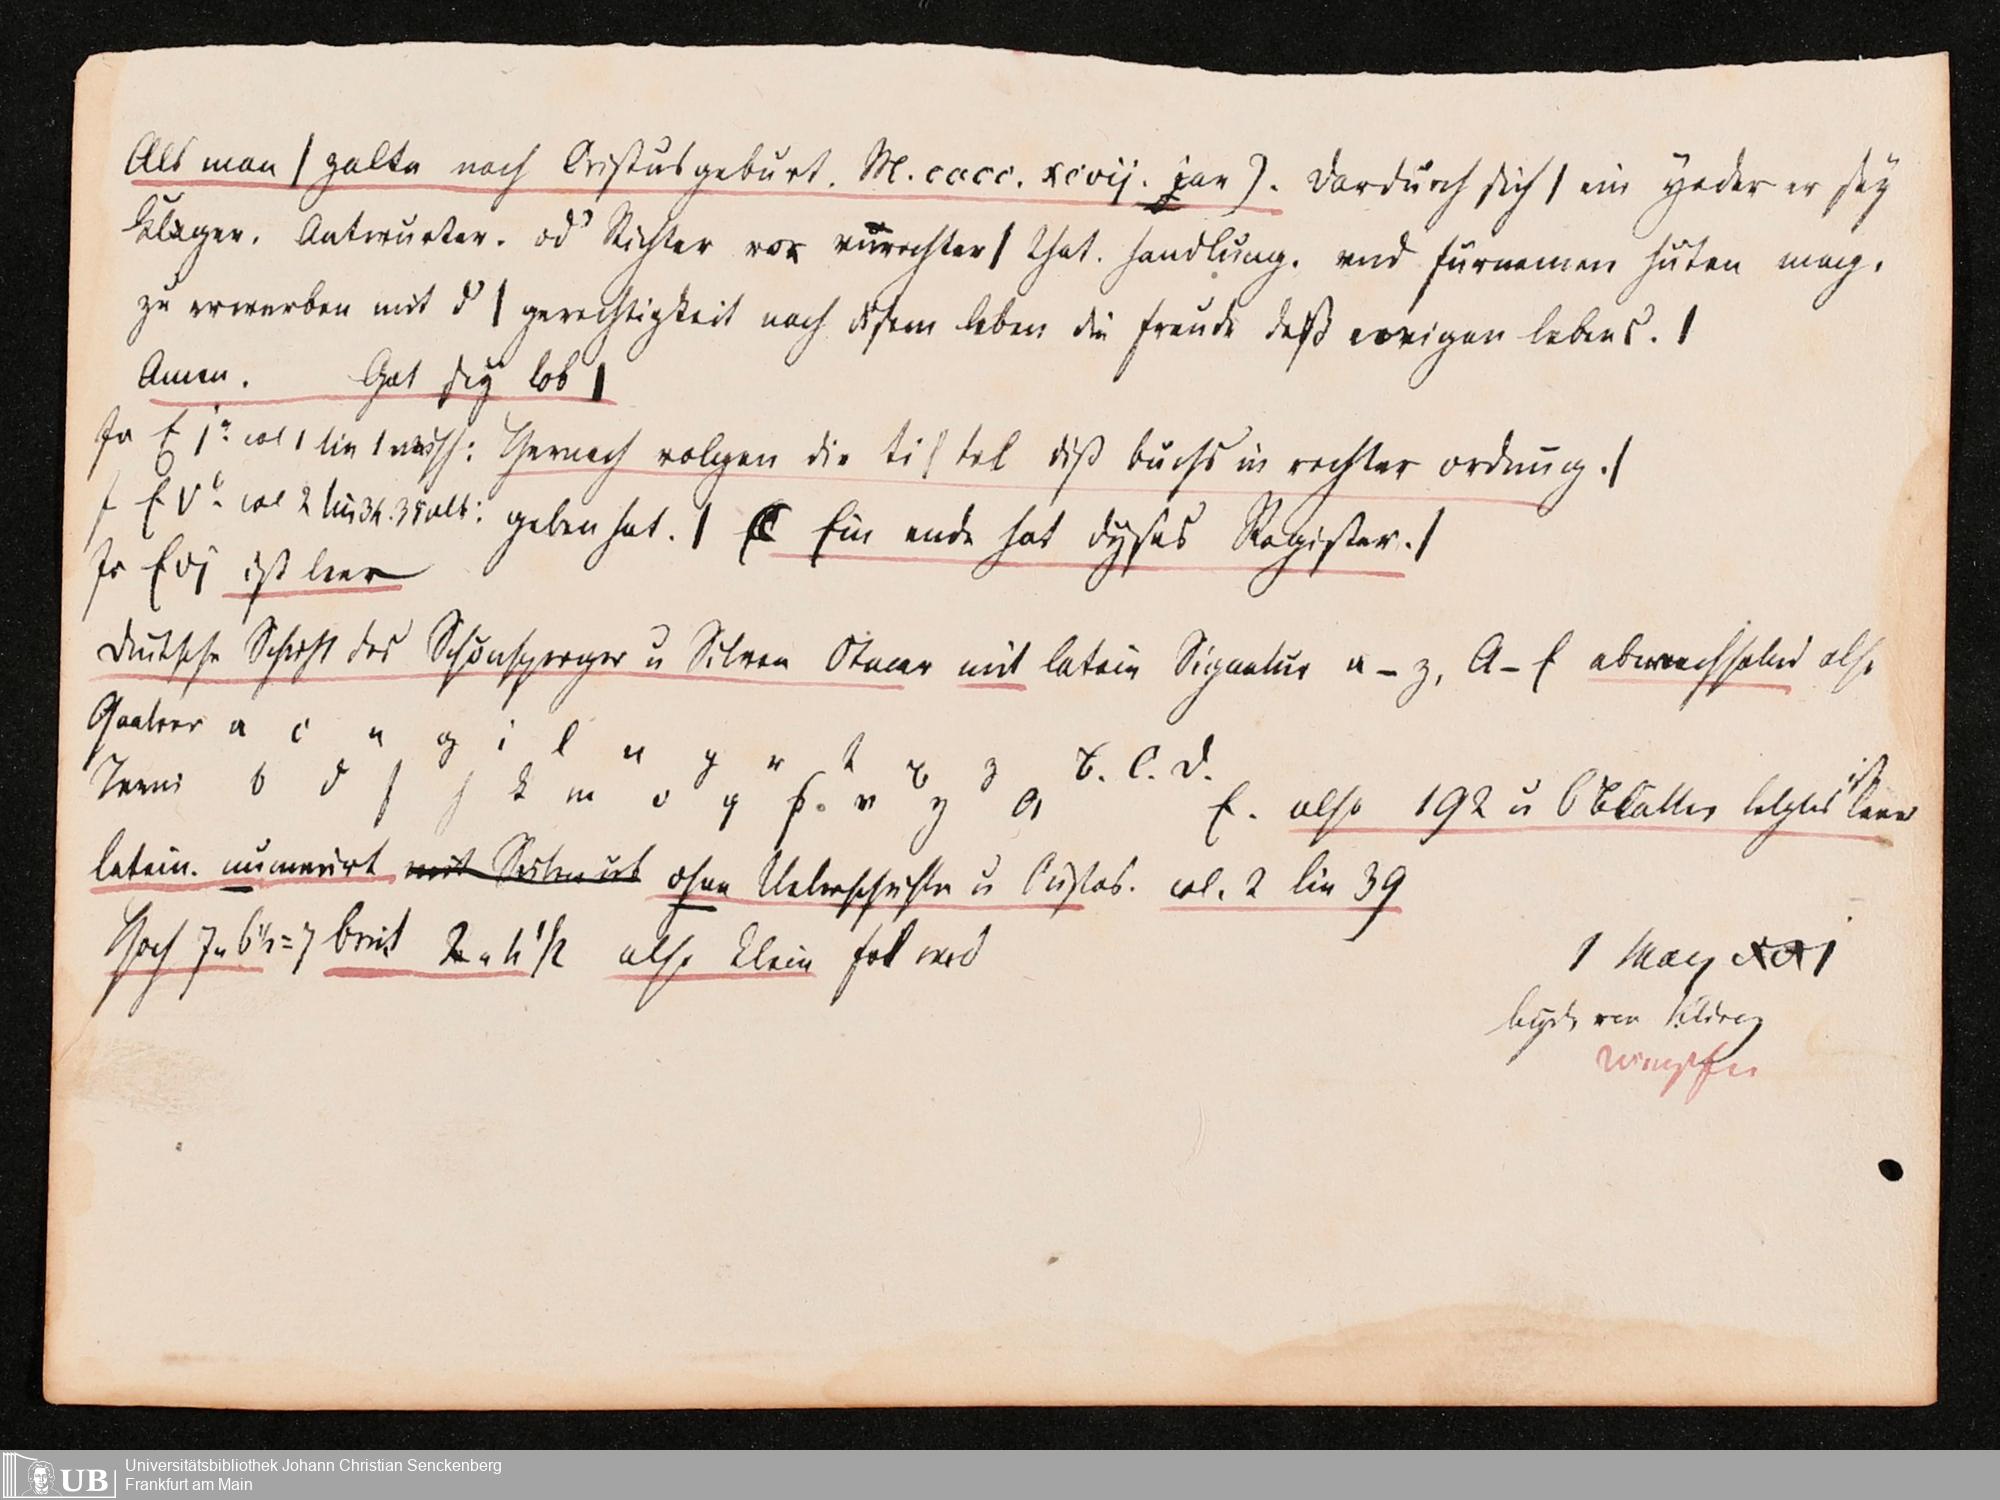 Als man | zalte nach Cristus geburt. M. cccc. xcvij. jar). Dardurch sich | ein yeder er sey
Klager. Antwurter. od' Richter vor vnrechter | that. handlung. vnd furnemen huten mag.
zu erwerben mit d' | gerechtigkeit nach disem leben die freude deß ewigen lebens. |
Amen. Got sey lob |
col 1 lin 1 Hernach volgen die ti | tel diß buchs in rechter ordnug. |
col 2 lin 34. 35 geben hat. | Ein ende hat dyses Register. |
E vj ist leer
Deutsche Schrift des Schönsperger u Silvan Otmar mit latein Signatur a – z, A – E abwechselnd also
Quatern a c e g i l n p r t x z B. C. D.
Terni b d f h k m o q s. v y A E. also 192 u 6 Blätter letztes ist leer
latein. numerirt ohne Ueberschriften u Custos. col. 2 lin 39
Hoch 7 u 6 1/2 = 7 breit also klein fol
1 May
Wimpfen
Universitätsbibliothek Johann Christian Senckenberg
Frankfurt am Main
UB